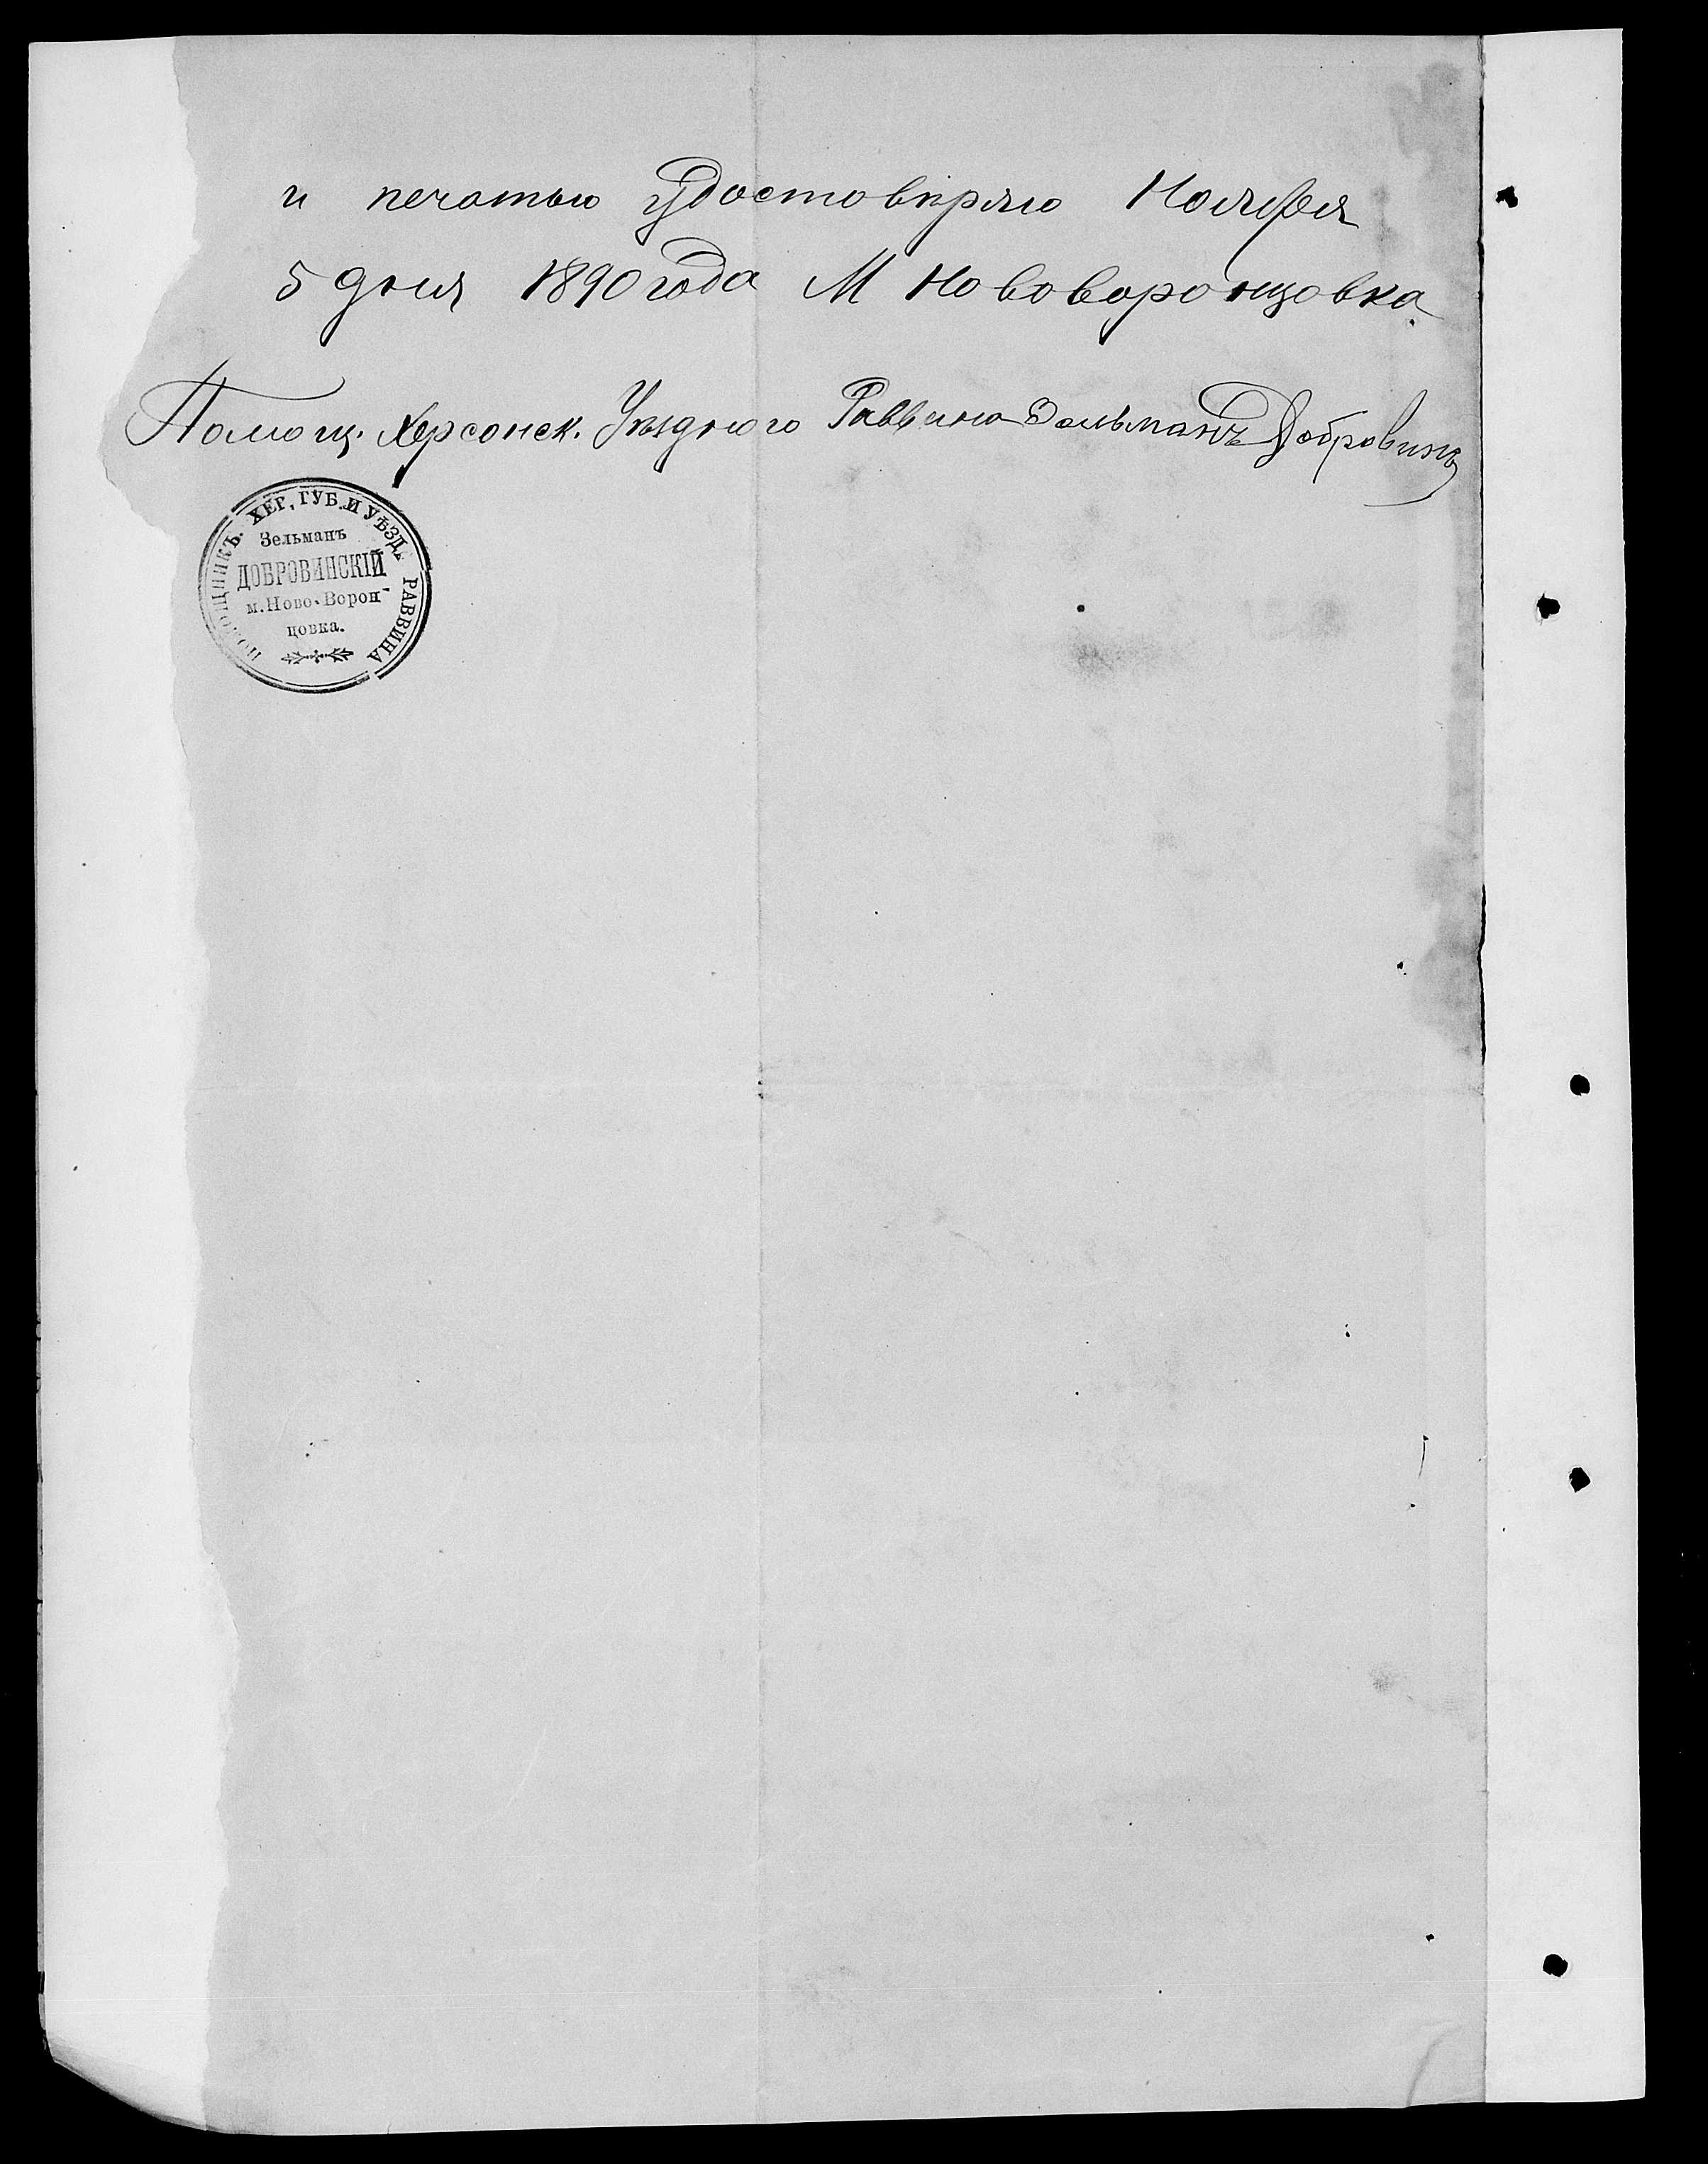 и печатью удостовѣряю Ноября
5 дня 1890 года М Нововоронцовка
Помощ. Херсонск. Уѣзднаго Раввина Зельманъ Добровинск
ПОМОЩНИКЪ. ХЕР. ГУБ. И УѢЗД. РАВВИНА
Зельманъ
ДОБРОВИНСКІЙ
м. Ново-Ворон-
цовка.